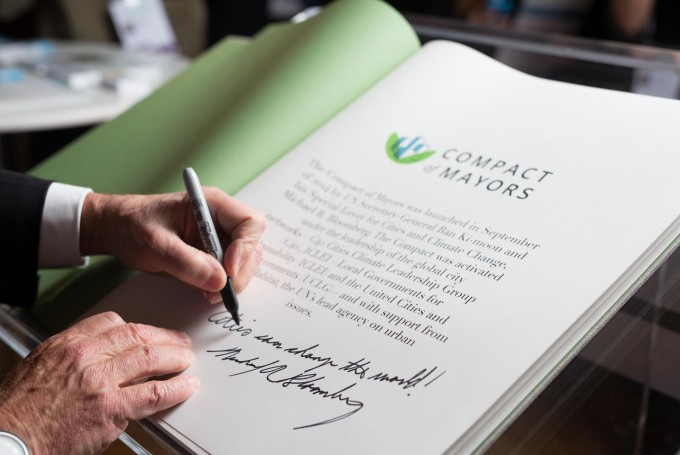 COMPACT
of MAYORS
The Compact of Mayors was launched in September
of 2014 by UN Secretary-General Ban Ki-moon and
his Special Envoy for Cities and Climate Change,
Michael R. Bloomberg. The Compact was activated
under the leadership of the global city
networks – C40 Cities Climate Leadership Group
(C40), ICLEI – Local Governments for
(ICLEI) and the United Cities and
Governments (UCLG) – and with support from
Habitat, the UN's lead agency on urban
issues.
Cities can change the world!
Michael R Bloomberg